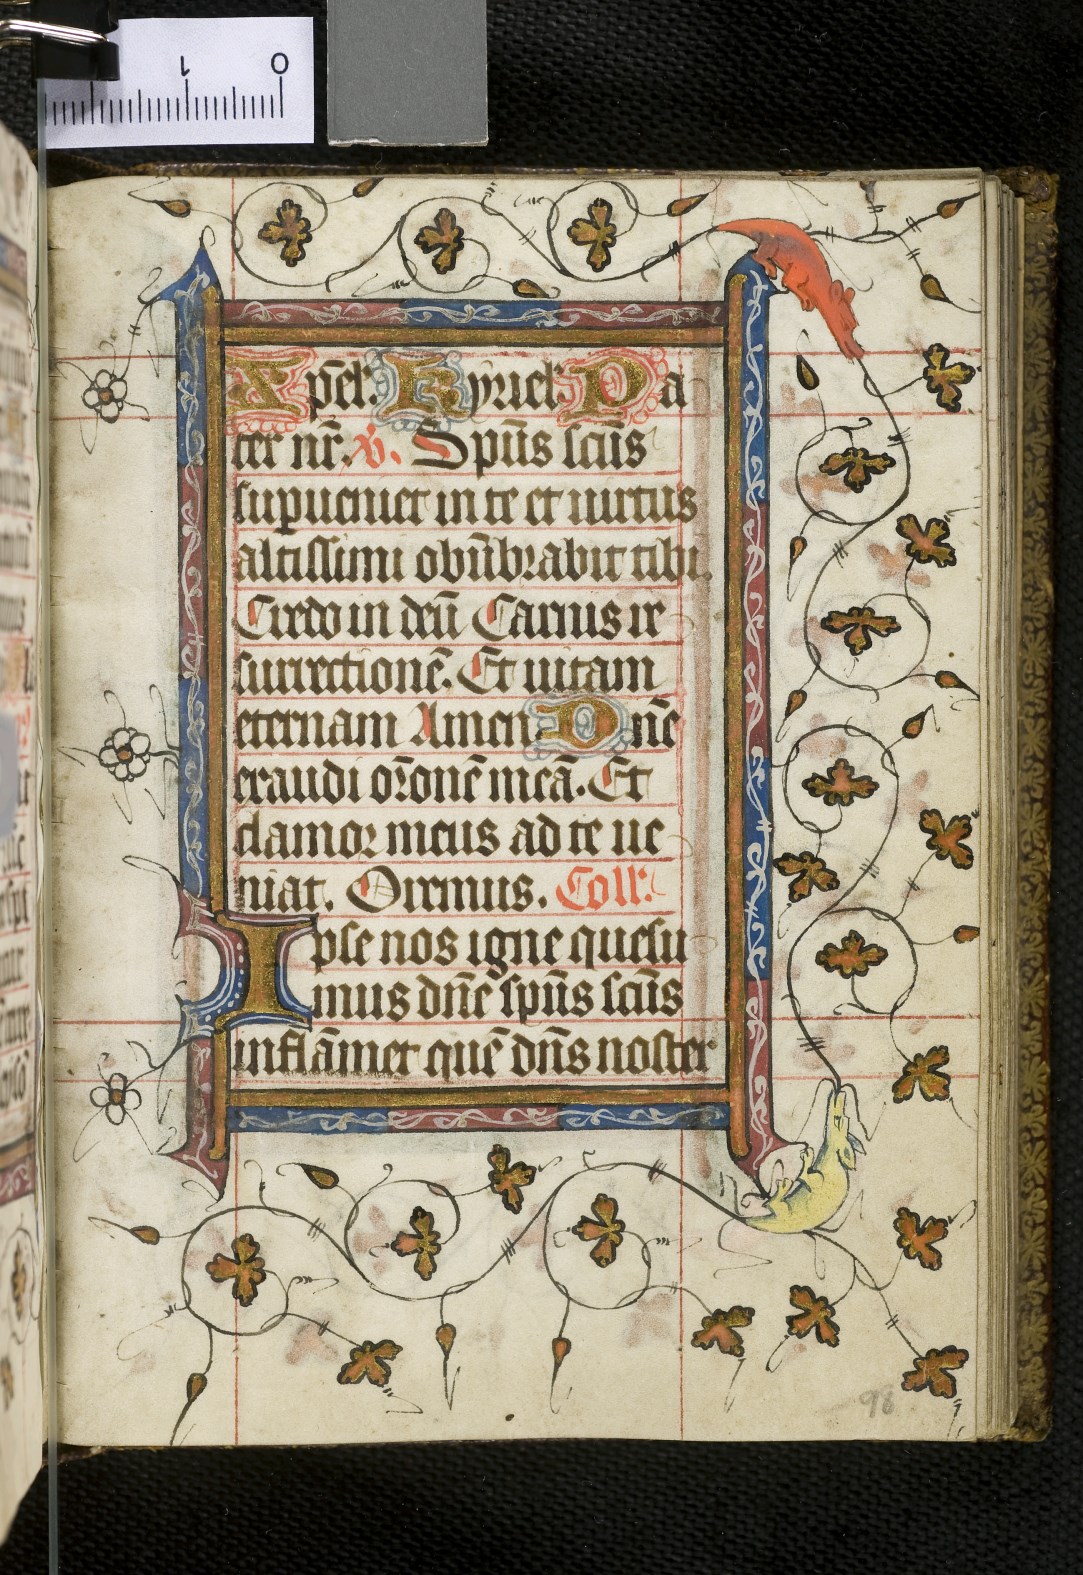 1 0
Xp̄el'. Kyriel'. Pa
ter nr̄. v̄. Sp̄us sc̄us
supueniet in te et uirtus
altissimi obūbrabit tibi.
Credo in deū Carnis re
surrectionē. Et uitam
eternam Amen Dn̄e
exaudi or̄onē meā. Et
clamor meus ad te ue
niat. Oremus. Coll'.
Ipse nos igne quesu
mus dn̄e sp̄us sc̄us
inflāmet quē dn̄s noster
98